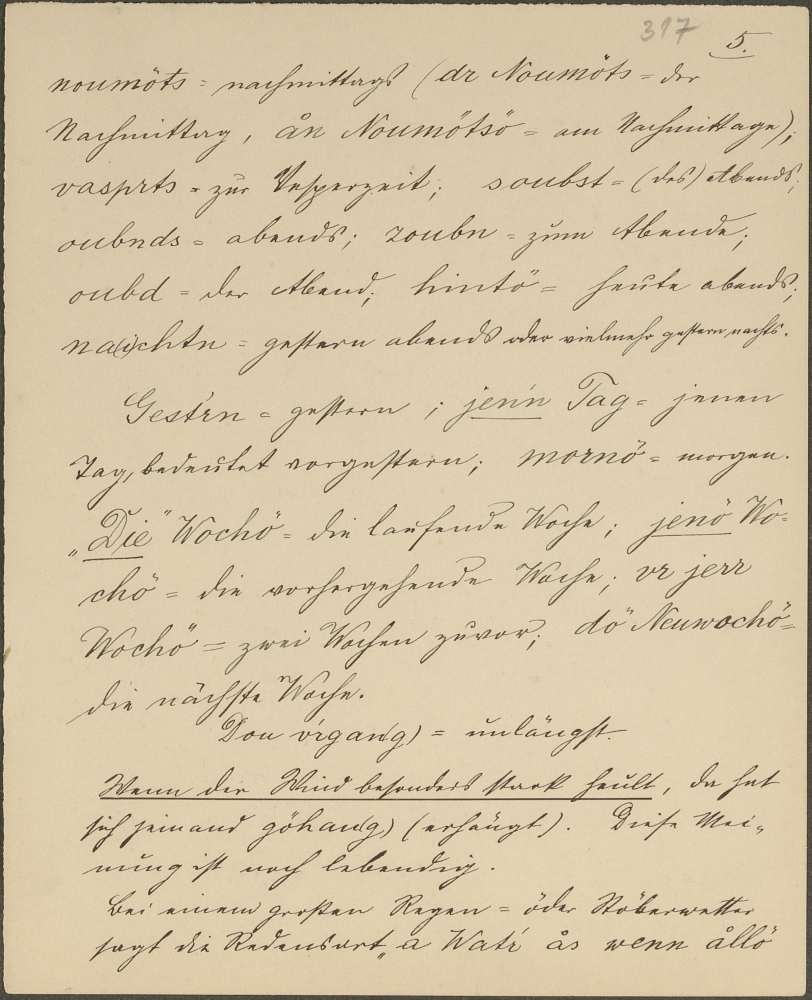 317
5.
noumöts = nachmittags (dr Noumöts = der
Nachmittag, ån Noumötsö = am Nachmittage);
vasprts = zur Vesperzeit; soubst = (des) Abends;
oubnds = abends; zoubn = zum Abende;
oubd = der Abend; hintö = heute abends;
na(i)chtn = gestern abends oder vielmehr gestern nachts.
Gest'rn = gestern; jen'n Tag = jenen
Tag, bedeutet vorgestern; mornö = morgen.
„Die" Wochö = die laufende Woche; jenö Wo-
chö = die vorhergehende Woche; vr jerr
Wochö = zwei Wochen zuvor; dö Neuwochö =
die nächste Woche.
Dou vrgan(g) = unlängst.
Wenn der Wind besonders stark heult, da hat
sich jeinand göhan(g) (erhängt). Diese Mei-
nung ist noch lebendig.
Bei einem großen Regen = oder Stöberwetter
sagt die Redensart „a Wat'r ås wenn ållö